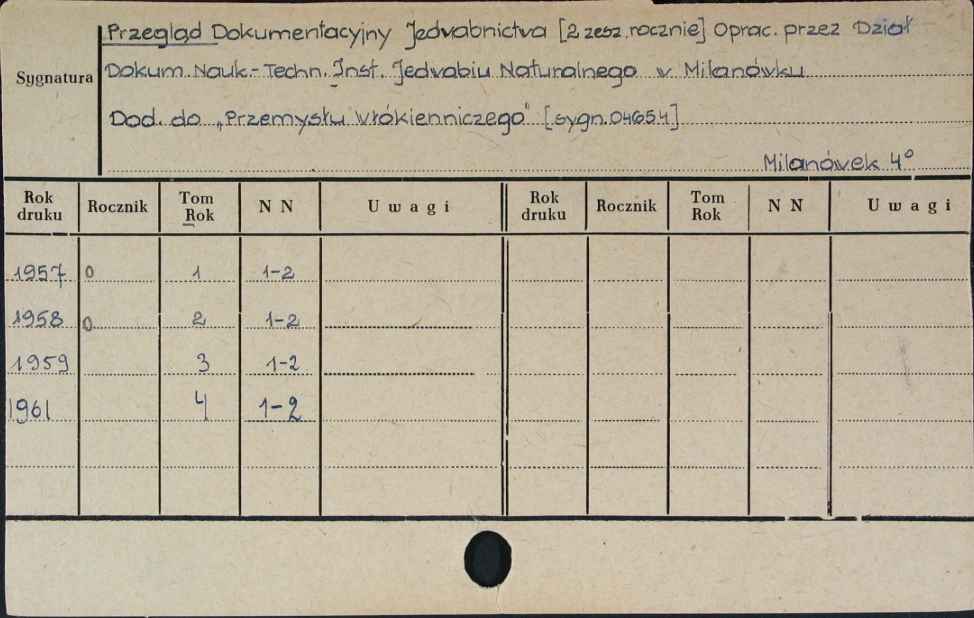 Przegląd Dokumentacyjny Jedwabnictwa [2 zesz. rocznie] Oprac. przez Dział
Sygnatura
Dokum. Nauk.-Techn. Inst. Jedwabiu Naturalnego w Milanówku
Dod. do „Przemysłu Włókienniczego" [sygn. 04654]
Milanówek 4°
Rok druku Rocznik Tom Rok N N Uwagi Rok druku Rocznik Tom Rok N N Uwagi
1957 0 1 1-2
1958 0 2 1-2
1959 3 1-2
1961 4 1-2